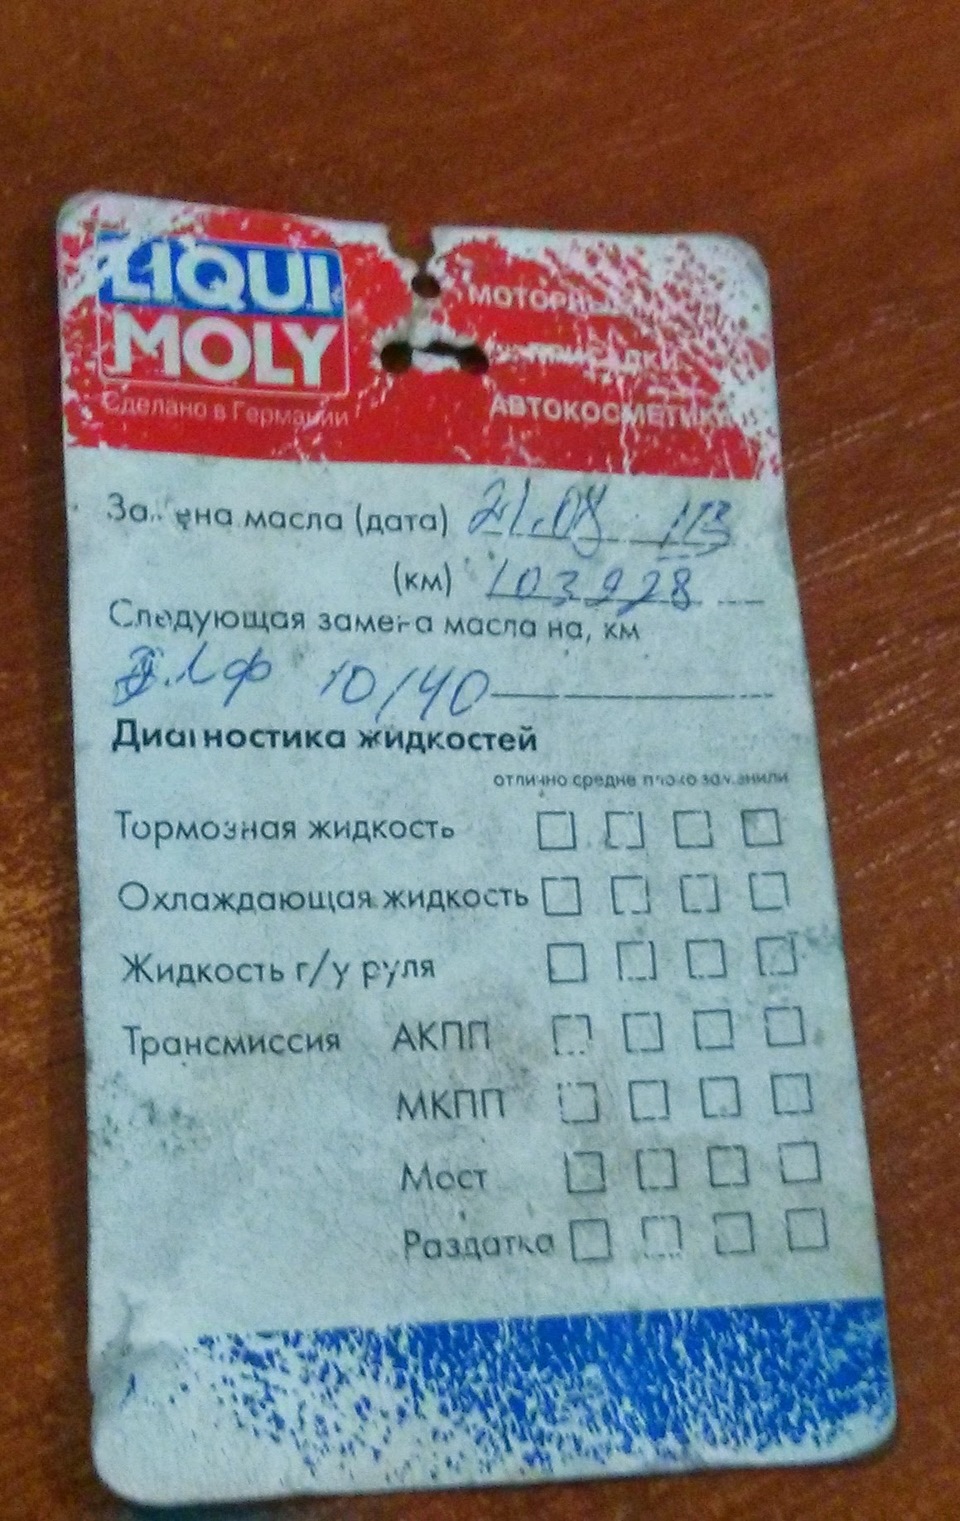 LIQUI
MOLY
Сделано в Германии
МОТОРНЫЕ
ПРИСАДКИ
АВТОКОСМЕТИКА
Замена масла (дата) 21.08
(км) 103928
Следующая замена масла на, км
Элф 10/40
Диагностика жидкостей
отлично средне плохо заменили
Тормозная жидкость
Охлаждающая жидкость
Жидкость г/у руля
Трансмиссия АКПП
МКПП
Мост
Раздатка